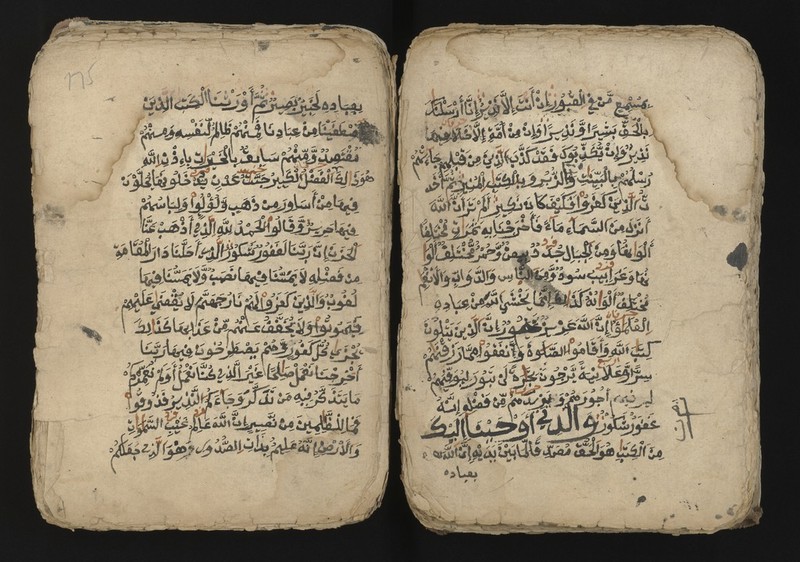 بمسمع من في القبور إن أنت إلا نذير إنا أرسلنك
بالحق بشيرا ونذيرا وإن من أمة إلا خلا فيها
نذير وإن يكذبوك فقد كذب الذين من قبلهم جاءتهم
رسلهم بالبينت وبالزبر وبالكتب المنير ثم أخذ
ت الذين كفروا فكيف كان نكير ألم تر أن الله
أنزل من السماء ماء فأخرجنا به ثمرت مختلفا
ألوانها ومن الجبال جدد بيض وحمر مختلف ألوا
نها وغرابيب سود ومن الناس والدواب والأنعم
مختلف ألوانه كذلك إنما يخشى الله من عباده
العلمؤا إن الله عزيز غفور إن الذين يتلون
كتب الله وأقاموا الصلوة وأنفقوا مما رزقنهم
سرا وعلانية يرجون تجرة لن تبور ليوفيهم
أجورهم ويزيدهم من فضله إنه
غفور شكور والذي أوحينا إليك
من الكتب هو الحق مصدقا لما بين يديه إن الله
بعباده
175
بعباده لخبير بصير ثم أورثنا الكتب الذين
اصطفينا من عبادنا فمنهم ظالم لنفسه ومنهم
مقتصد ومنهم سابق بالخيرت بإذن الله
ذلك هو الفضل الكبير جنت عدن يدخلونها يحلون
فيها من أساور من ذهب ولؤلؤا ولباسهم
فيها حرير وقالوا الحمد لله الذي أذهب عنا
الحزن إن ربنا لغفور شكور الذي أحلنا دار المقامة
من فضله لا يمسنا فيها نصب ولا يمسنا فيها
لغوب والذين كفروا لهم نار جهنم لا يقضى عليهم
فيموتوا ولا يخفف عنهم من عذابها كذلك
نجزي كل كفور وهم يصطرخون فيها ربنا
أخرجنا نعمل صلحا غير الذي كنا نعمل أولم نعمركم
ما يتذكر فيه من تذكر وجاءكم النذير فذوقوا
فما للظلمين من نصير إن الله علم غيب السموات
والأرض إنه عليم بذات الصدور هو الذي جعلكم